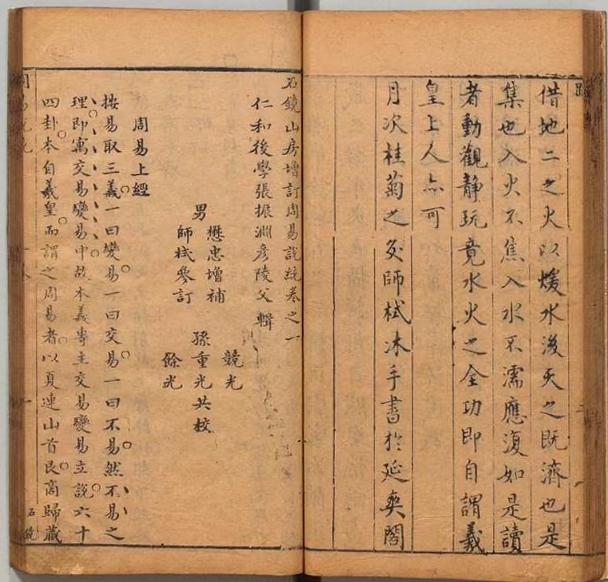 借地二之火以煖水後天之既濟也是
集也入火不焦入水不濡應復如是讀
者動觀靜玩竟水火之全功即自謂羲
皇上人亦可
月次桂菊之交師栻沐手書於延爽閣
石鏡山房增訂周易說統卷之一
仁和後學張振淵彥陵父輯
男
懋忠增補
師栻參訂
孫
競光
重光共校
餘光
周易上經
按易取三義一曰變易一曰交易一曰不易然不易之
理即寓交易變易中故本義專主交易變易立說六十
四卦本自羲皇而謂之周易者以夏連山首艮商歸藏